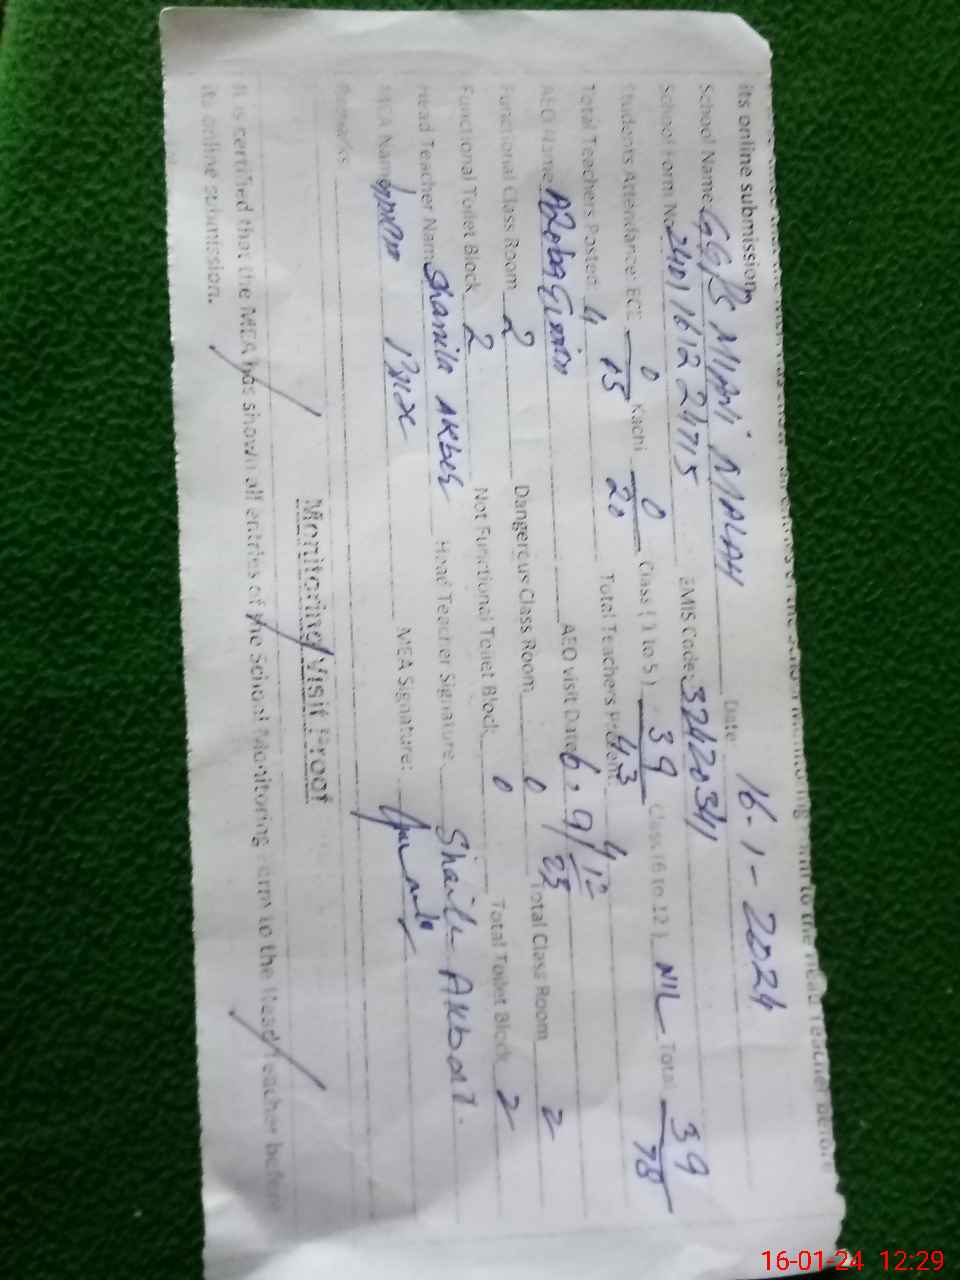 its online submission
School Name: GGPS MIANI MALAH Date: 16-1-2024
School Form No. 2401161224715 EMIS Code: 32420341
Students Attendance: ECE 0/15 Kachi 0/20 Class (1 to 5) 39/43 Class (6 to 12) NIL Total 39/78
Total Teachers Posted 4 Total Teachers Present
AEO Name AEO Visit Date
Functional Class Room 2 Dangerous Class Room 0 Total Class Room 2
Functional Toilet Block 2 Not Functional Toilet Block 0 Total Toilet Block 2
Head Teacher Name Shamila Akber Head Teacher Signature Akbar
MEA Name MEA Signature:
Remarks
Monitoring Visit Proof
It is certified that the MEA has shown all entries of the School Monitoring form to the Head Teacher before
its online submission.
16-01-24 12:29